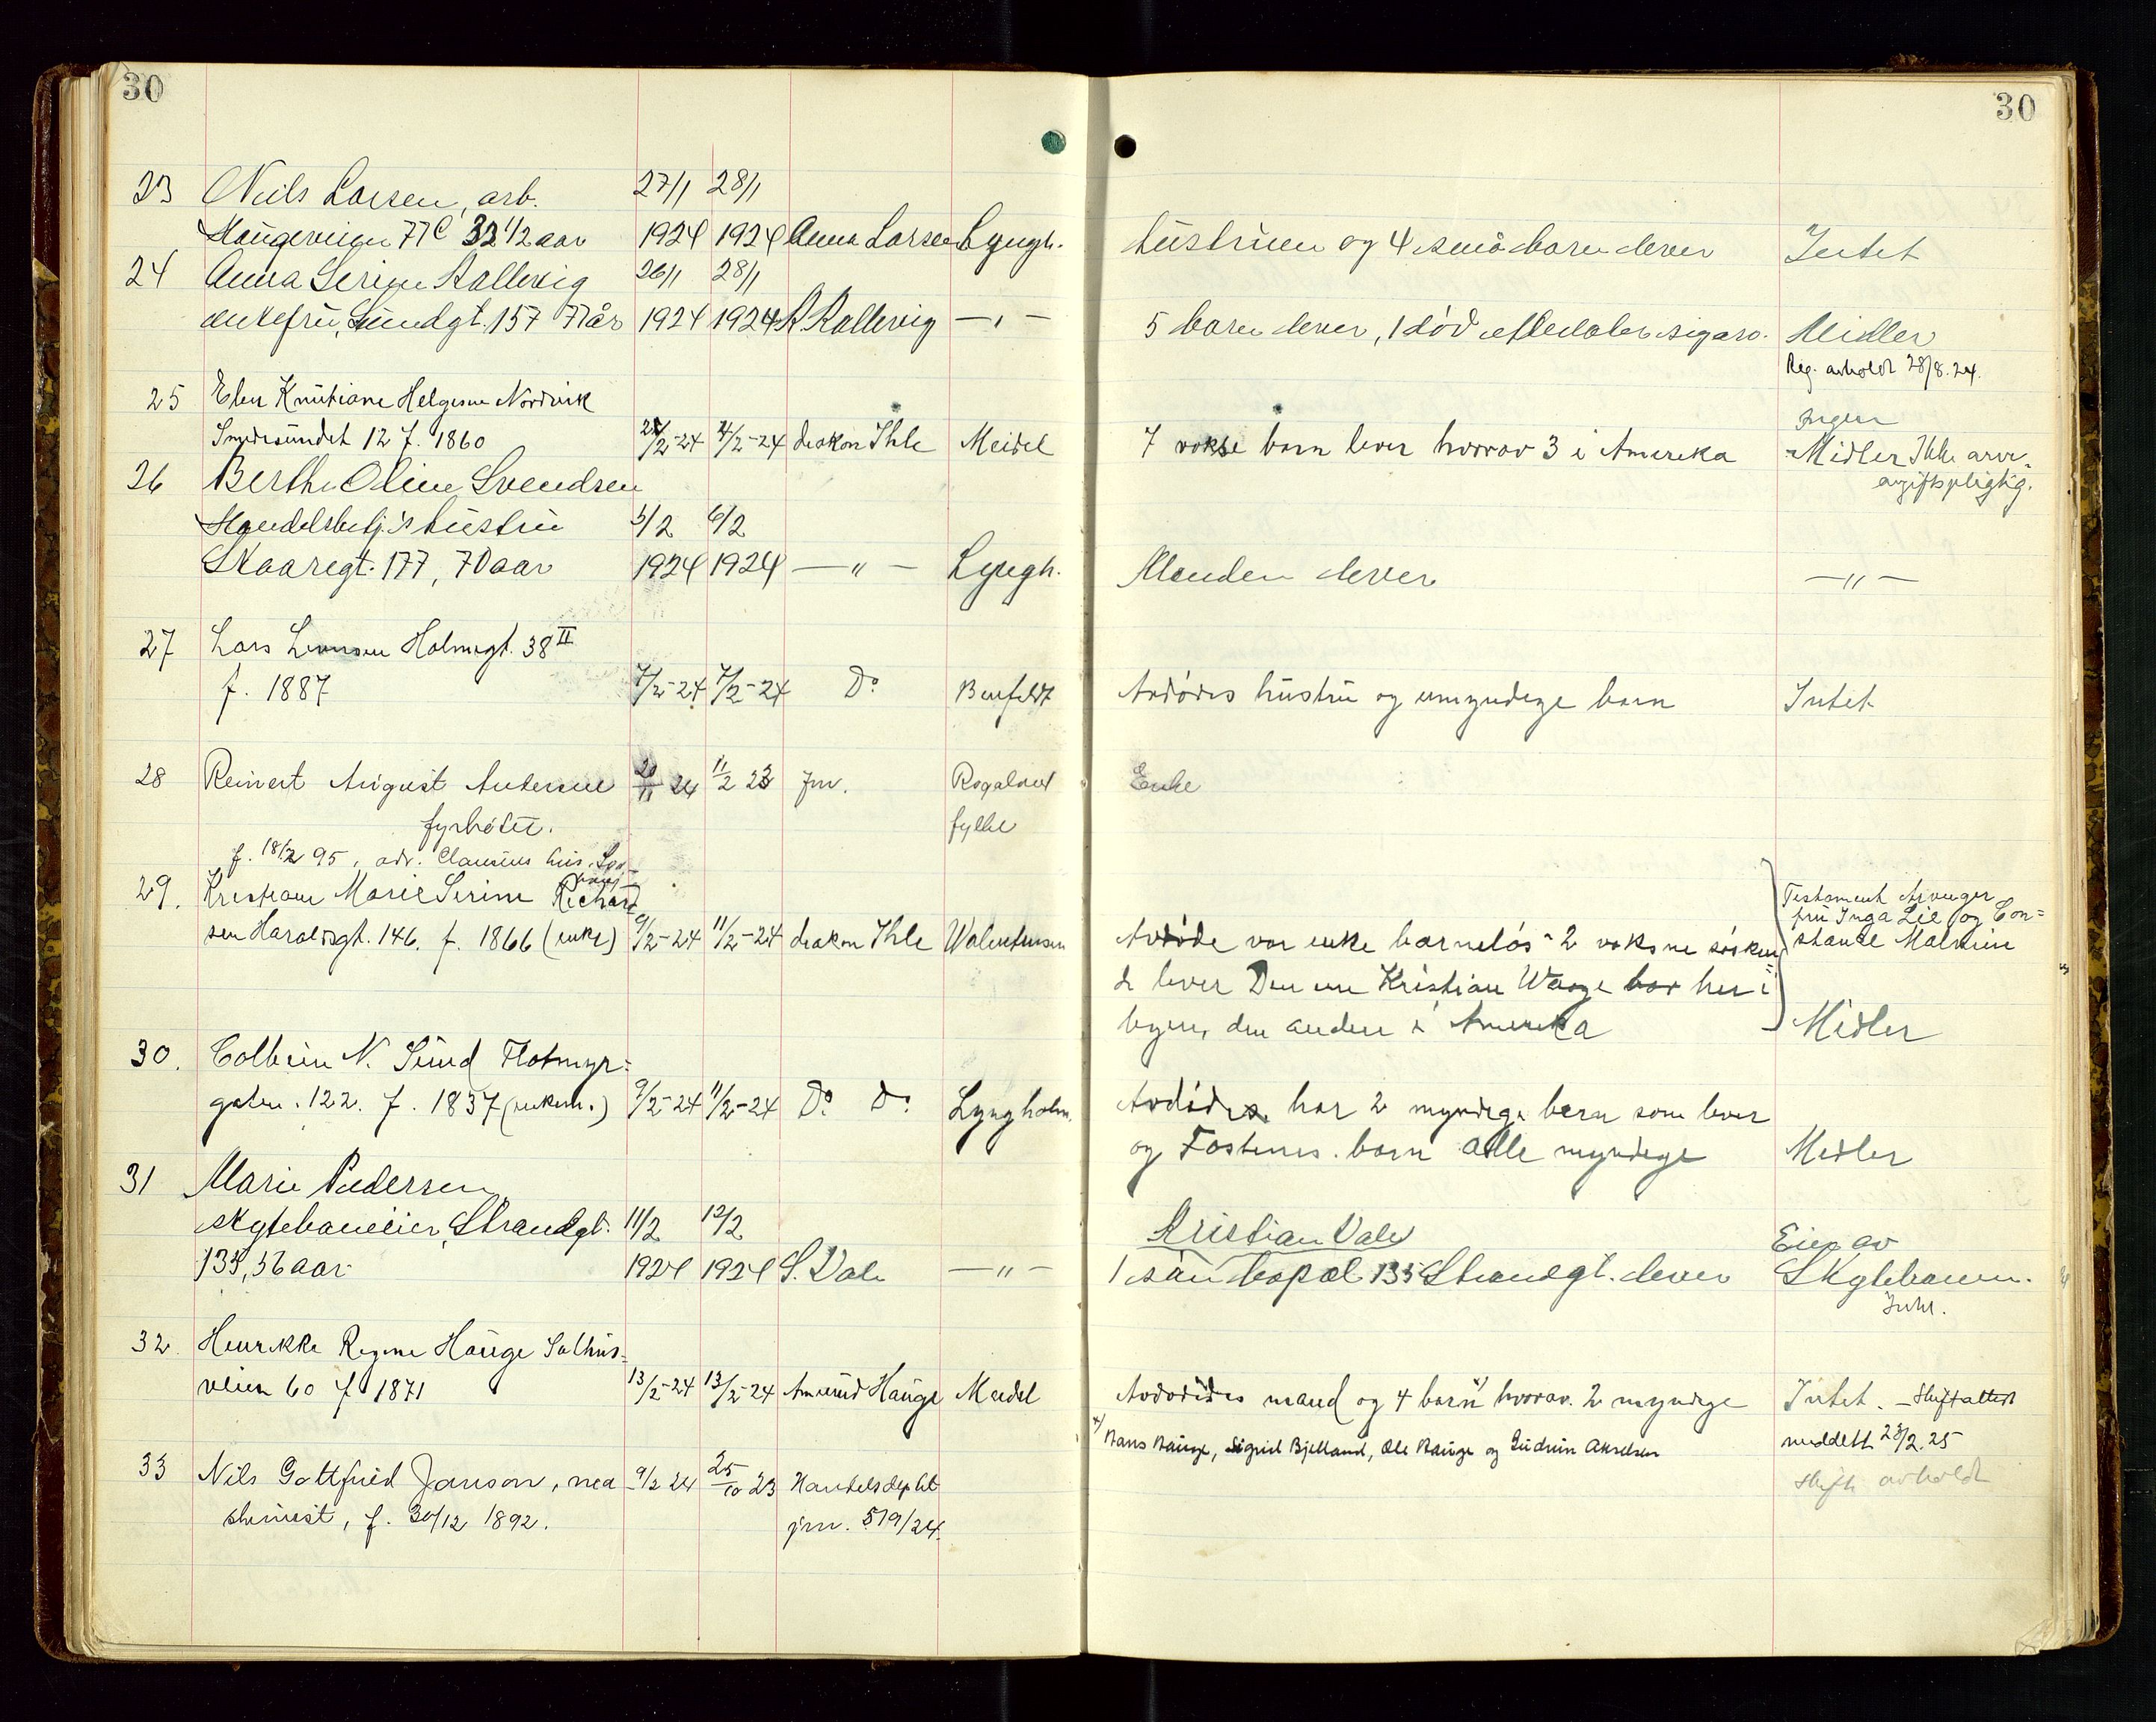 30
30
23 Niels Larsen, arb. 27/1 28/1
Haugeveien 77C 32 1/2 aar 1924 1924 Anna Larsen Lyngh. hustruen og 4 små barn lever Intet
24 Anna Serine Kallevig 26/1 28/1
enkefru, Sundgt. 157 77 år 1924 1924 K Kallevig — " — 5 barn lever, 1 død Midler
Reg. avholdt 28/8.24.
25 Elen Kristiane Helgesen Nordvik Ingen
Smedesundet 12 f. 1860 2/2-24 4/2-24 diakon Ihle Meidel 7 vokse barn lever hvorav 3 i Amerika Midler Ikke arve-
avgiftspligtig.
26 Berthe Oline Svendsen
Handelsbetj.'s hustru 5/2 6/2
Skaaregt. 177, 70 aar 1924 1924 — " — Lyngh. Manden lever — " —
27 Lars Larsen Holmegt. 38 II
f. 1887 7/2-24 7/2-24 Do Benfeldt Avdødes hustru og umyndige barn Intet
28 Reinert August Andersen 24 11/2 23 jnr. Rogaland Enke
fyrbøter. fylke
f. 18/2 95, adr. Clausens hus,
29. Kristiane Marie Serine Richard Testament Arvinger
sen Haraldsgt. 146. f. 1866 (enke) 9/2-24 11/2-24 diakon Ihle Walentinsen Avdøde var enke barneløs - 2 voksne søsken fru Inga Lie og Con=
stance Malmin
de lever Den ene Kristian Waage bor her i
byen, den anden i Amerika Midler
30. Colbein N. Sund Flotmyr=
gaten. 122. f. 1837 (enkem.) 9/2-24 11/2-24 Do Do Lyngholm. Avdødes har 2 myndige barn som lever
og Fosterns. barn alle myndige Midler
31 Marie Pedersen
skytebaneeier, Strandgt. 11/2 12/2 Kristian Vale Eier av
135, 56 aar 1924 1924 S. Vale — " — 1 søn bopæl 135 Strandgt. lever Skytebanen.
32. Henrikke Regine Hauge Salhus-
veien 60 f 1871 13/2-24 13/2-24 Amund Hauge Meidel Avdødes mand og 4 barn x) hvorav. 2 myndige Intet. — Skifteattest
x) Hans Hauge, Sigrid Bjelland, Ole Hauge og Gudrun Akselsen meddelt 23/2.25
33 Nils Gottfried Janson, ma 9/2 24 25/10 23 Handelsdept Skifte avholdt
skinist, f. 30/12 1892. jnr. 519/24.